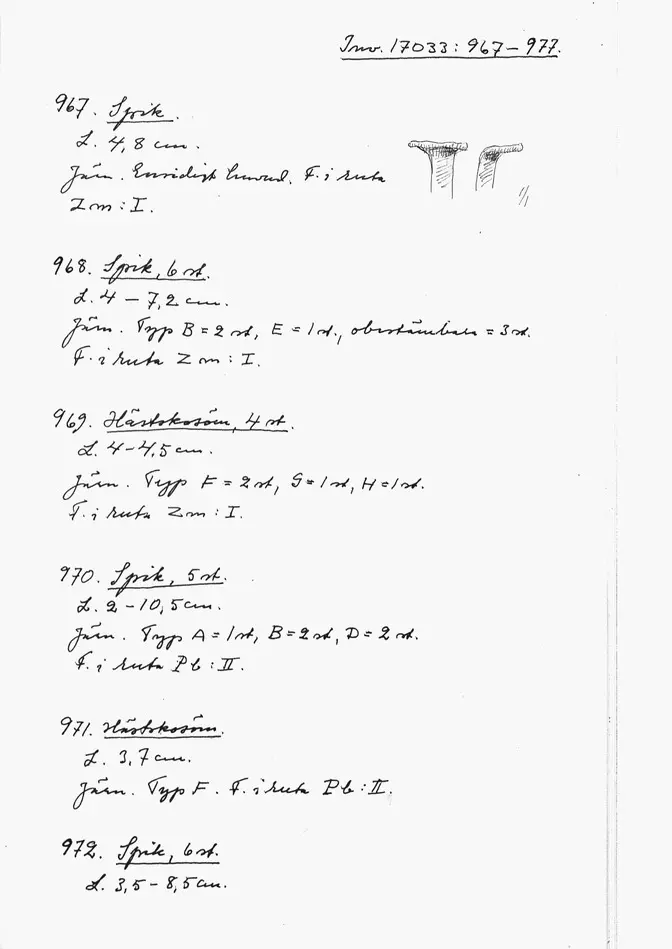 Inv. 17033: 967 – 977.
967. Spik.
L. 4,8 cm.
Järn. Ensidigt huvud. F. i ruta
Zm: I.
968. Spik, 6 st.
L. 4 – 7,2 cm.
Järn. Typ B = 2 st, E = 1 st., obestämbara = 3 st.
F. i ruta Zm: I.
969. Hästskosöm, 4 st.
L. 4 – 4,5 cm.
Järn. Typ F = 2 st, G = 1 st, H = 1 st.
F. i ruta Zm: I.
970. Spik, 5 st.
L. 2 – 10,5 cm.
Järn. Typ A = 1 st, B = 2 st, D = 2 st.
F. i ruta Pb: II.
971. Hästskosöm.
L. 3,7 cm.
Järn. Typ F. F. i ruta Pb: II.
972. Spik, 6 st.
L. 3,5 – 8,5 cm.